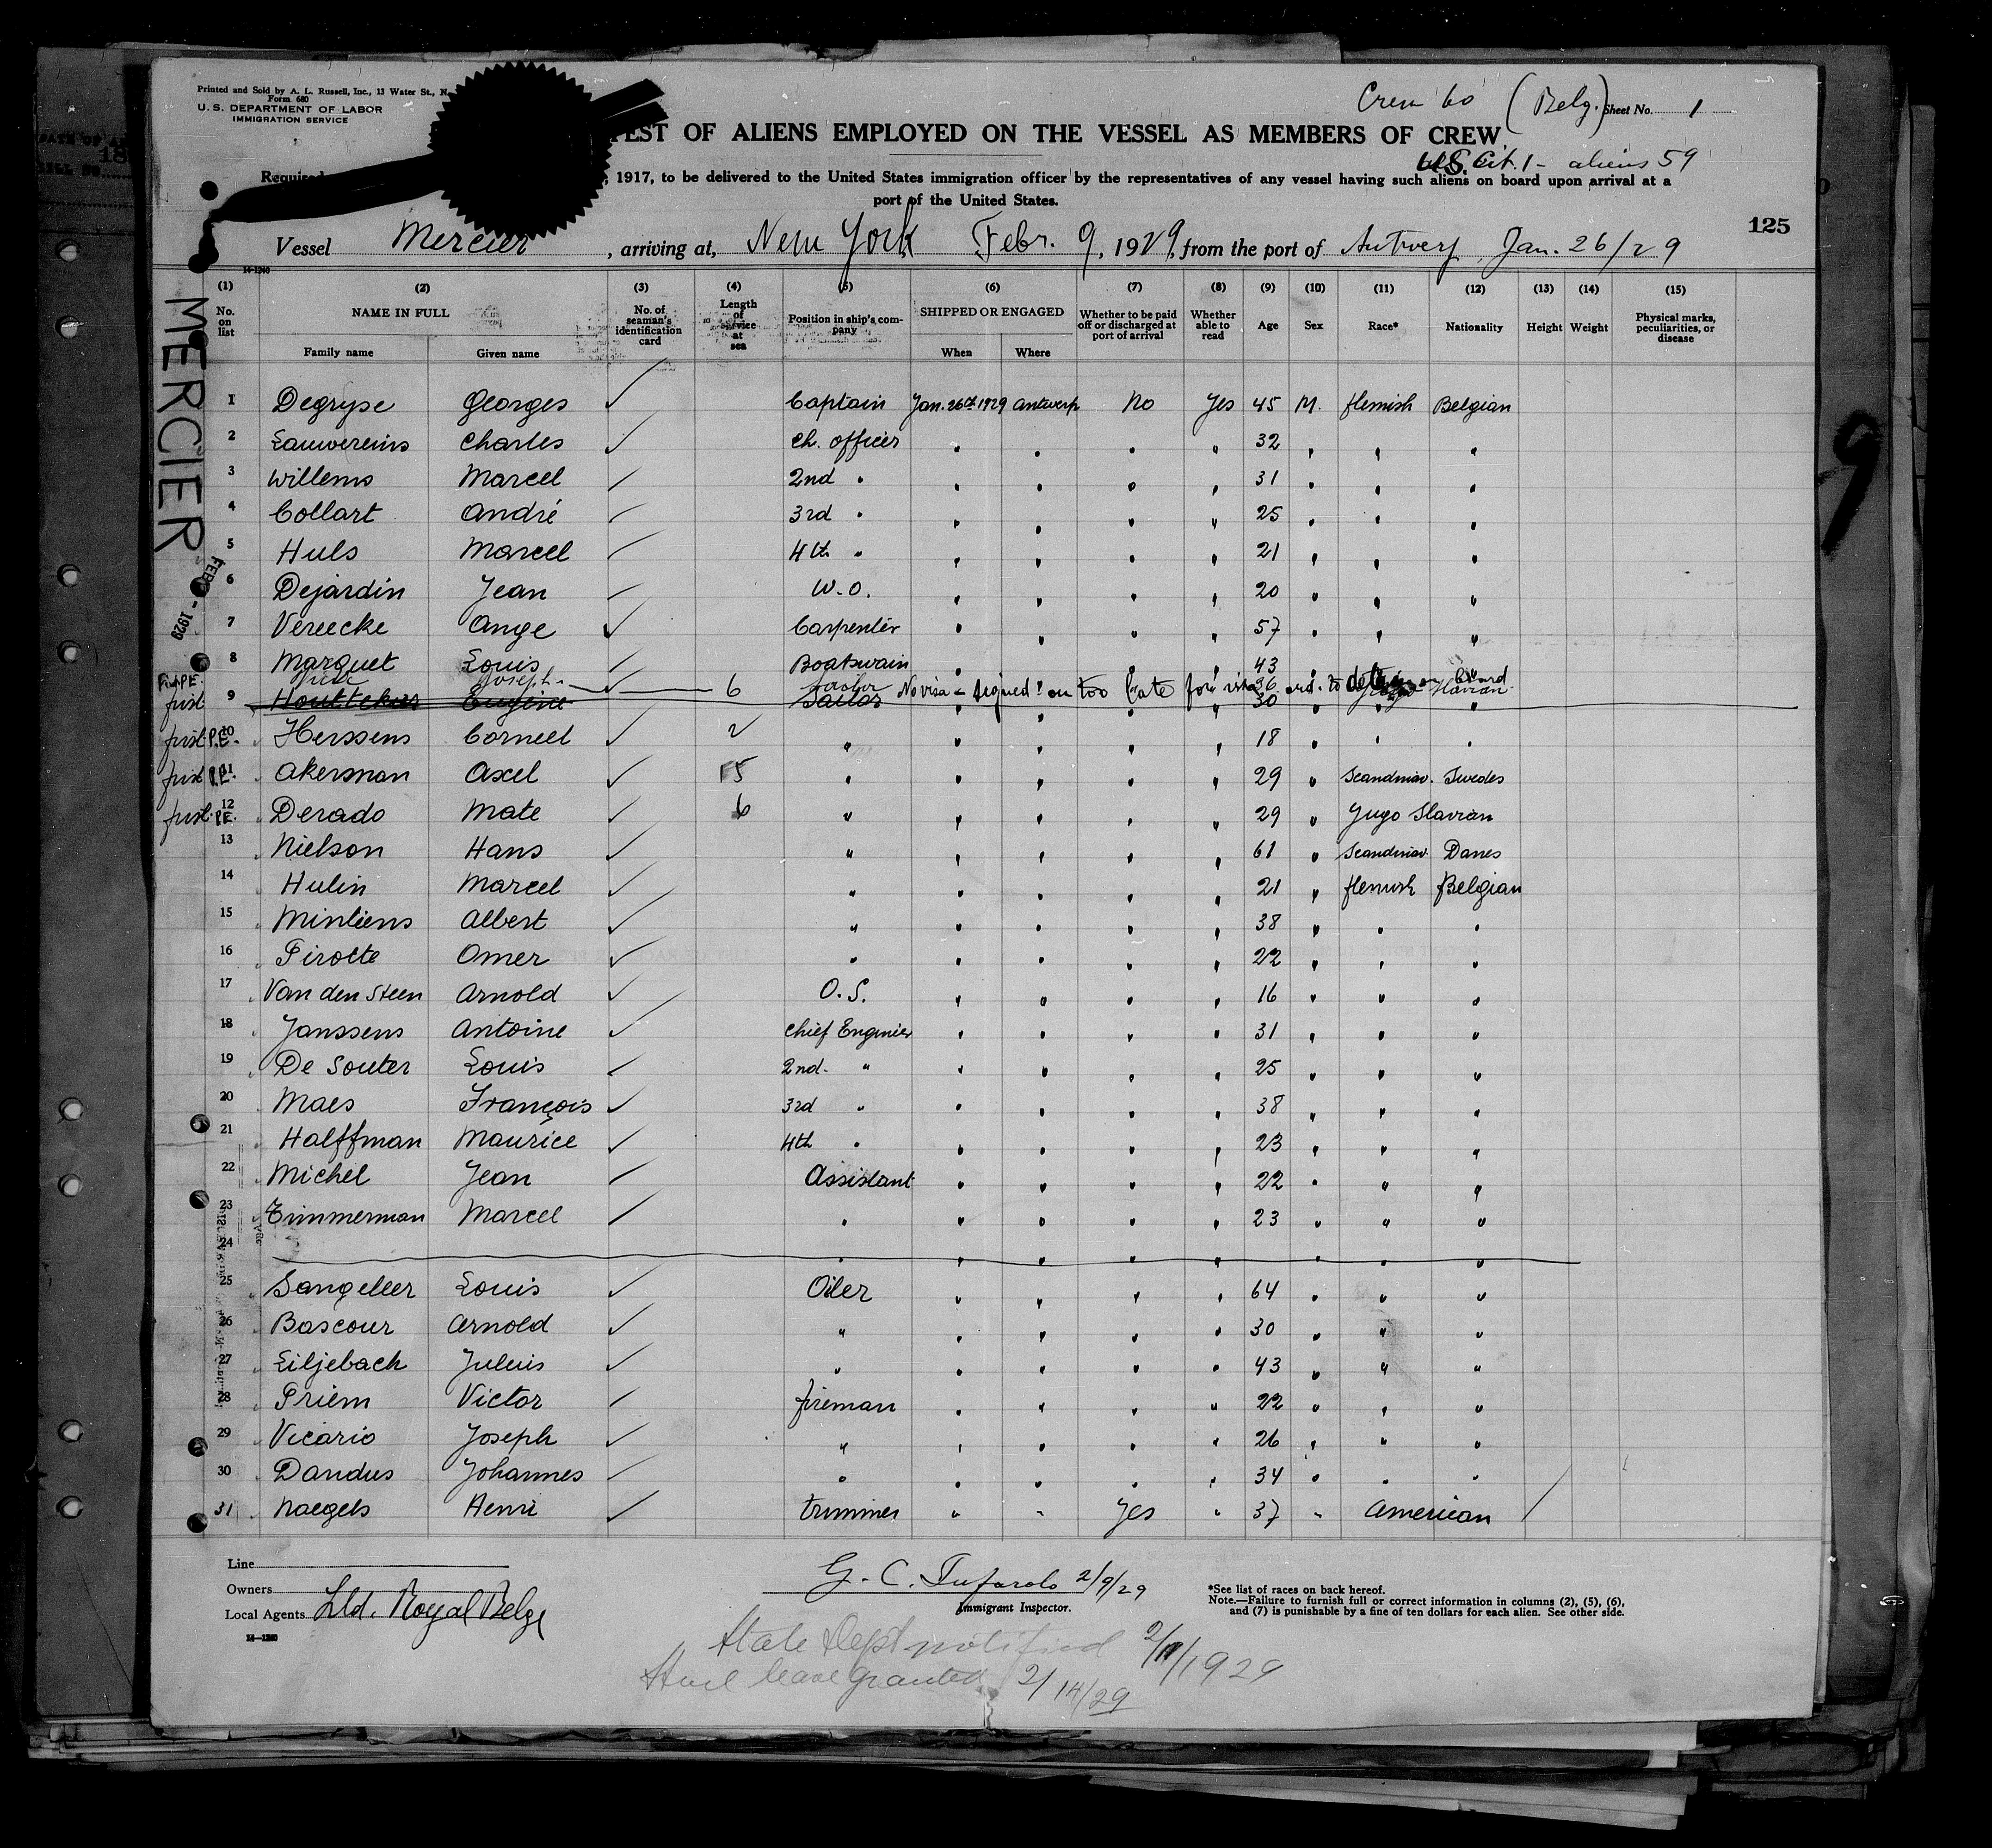 Printed and Sold by A. L. Russell, Inc., 13 Water St., N.
Form 680
U. S. DEPARTMENT OF LABOR
IMMIGRATION SERVICE
Crew 60 (Belg.) Sheet No. 1
EST OF ALIENS EMPLOYED ON THE VESSEL AS MEMBERS OF CREW
U.S. Cit. 1 - aliens 59
Required , 1917, to be delivered to the United States immigration officer by the representatives of any vessel having such aliens on board upon arrival at a
port of the United States.
125
Vessel Mercier, arriving at, New York Febr. 9, 1929, from the port of Antwerp, Jan. 26/29
14-1240
(1) (2) (3) (4) (5) (6) (7) (8) (9) (10) (11) (12) (13) (14) (15)
No. on list NAME IN FULL No. of seaman's identification card Length of service at sea Position in ship's company SHIPPED OR ENGAGED Whether to be paid off or discharged at port of arrival Whether able to read Age Sex Race* Nationality Height Weight Physical marks, peculiarities, or disease
Family name Given name When Where
MERCIER
FEB 9 - 1929
9
1 Degryse Georges ✓ Captain Jan. 26th 1929 Antwerp No Yes 45 M. flemish Belgian
2 Lauwereins Charles ✓ Ch. officer " " " " 32 " " "
3 Willems Marcel ✓ 2nd " " " " " 31 " " "
4 Collart André ✓ 3rd " " " " " 25 " " "
5 Huls Marcel ✓ 4th " " " " " 21 " " "
6 Dejardin Jean ✓ W.O. " " " " 20 " " "
7 Vereecke Ange ✓ Carpenter " " " " 57 " " "
8 Marquet Louis ✓ Boatswain " " " " 43 " " "
Joseph 6 Sailor No visa - signed on too late for visa 36 ord. to detain on board
first 9 Houttekies Eugène Sailor " " " " 30 " " "
first P.E. 10 Herssens Corneel ✓ 2 " " " " " 18 " " "
first P.E. 11 Akerman Axel ✓ 15 " " " " " 29 " Scandinav. Swedes
first P.E. 12 Derado Mate ✓ 6 " " " " " 29 " Yugo Slavian
13 Nielson Hans ✓ " " " " " 61 " Scandinav. Danes
14 Hulin Marcel ✓ " " " " " 21 " flemish Belgian
15 Minliens Albert ✓ " " " " " 38 " " "
16 Pirotte Omer ✓ " " " " " 22 " " "
17 Van den Steen Arnold ✓ O.S. " " " " 16 " " "
18 Janssens Antoine ✓ Chief Engineer " " " " 31 " " "
19 De Souter Louis ✓ 2nd. " " " " " 25 " " "
20 Maes François ✓ 3rd " " " " " 38 " " "
21 Halffman Maurice ✓ 4th " " " " " 23 " " "
22 Michel Jean ✓ Assistant " " " " 22 " " "
23 Timmerman Marcel ✓ " " " " " 23 " " "
24 " " " " " " " "
25 Sangeller Louis ✓ Oiler " " " " 64 " " "
26 Bascour Arnold ✓ " " " " " 30 " " "
27 Liljebach Juleuis ✓ " " " " " 43 " " "
28 Priem Victor ✓ fireman " " " " 22 " " "
29 Vicario Joseph ✓ " " " " " 26 " " "
30 Dandus Johannes ✓ " " " " " 34 " " "
31 Naegels Henri ✓ trimmer " " Yes " 37 " American /
Line
Owners
Local Agents Lld. Royal Belge
14-1240
G. C. Tufarolo 2/9/29
Immigrant Inspector.
*See list of races on back hereof.
Note.—Failure to furnish full or correct information in columns (2), (5), (6),
and (7) is punishable by a fine of ten dollars for each alien. See other side.
State Dept notified 2/11/1929
leave granted 2/14/29